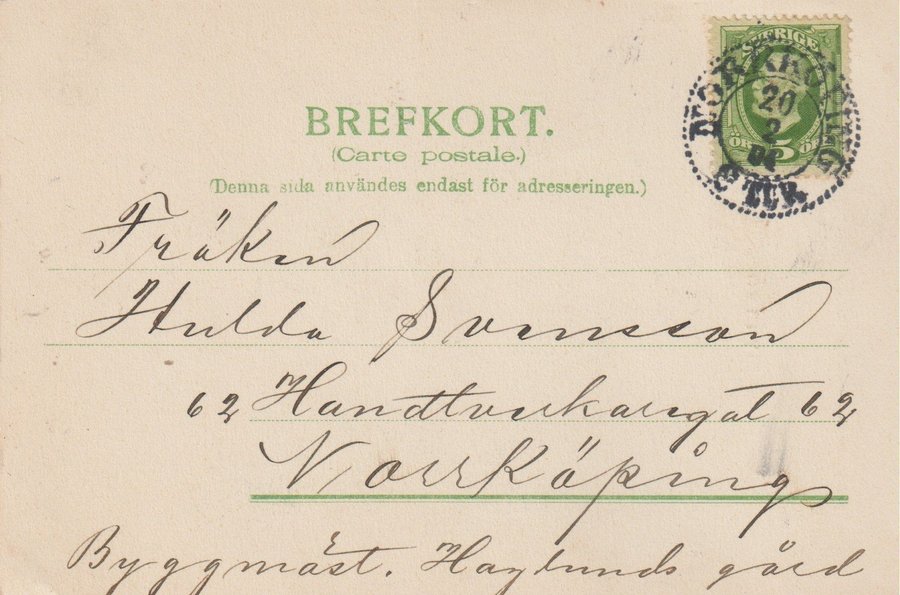 SVERIGE
ÖRE 5 ÖRE
NORRKÖPING
20
2
04
2 TUR.
BREFKORT.
(Carte postale.)
(Denna sida användes endast för adresseringen.)
Fröken
Hulda Svensson
62 Handtverkaregat 62
Norrköping
Byggmäst. Haglunds gård